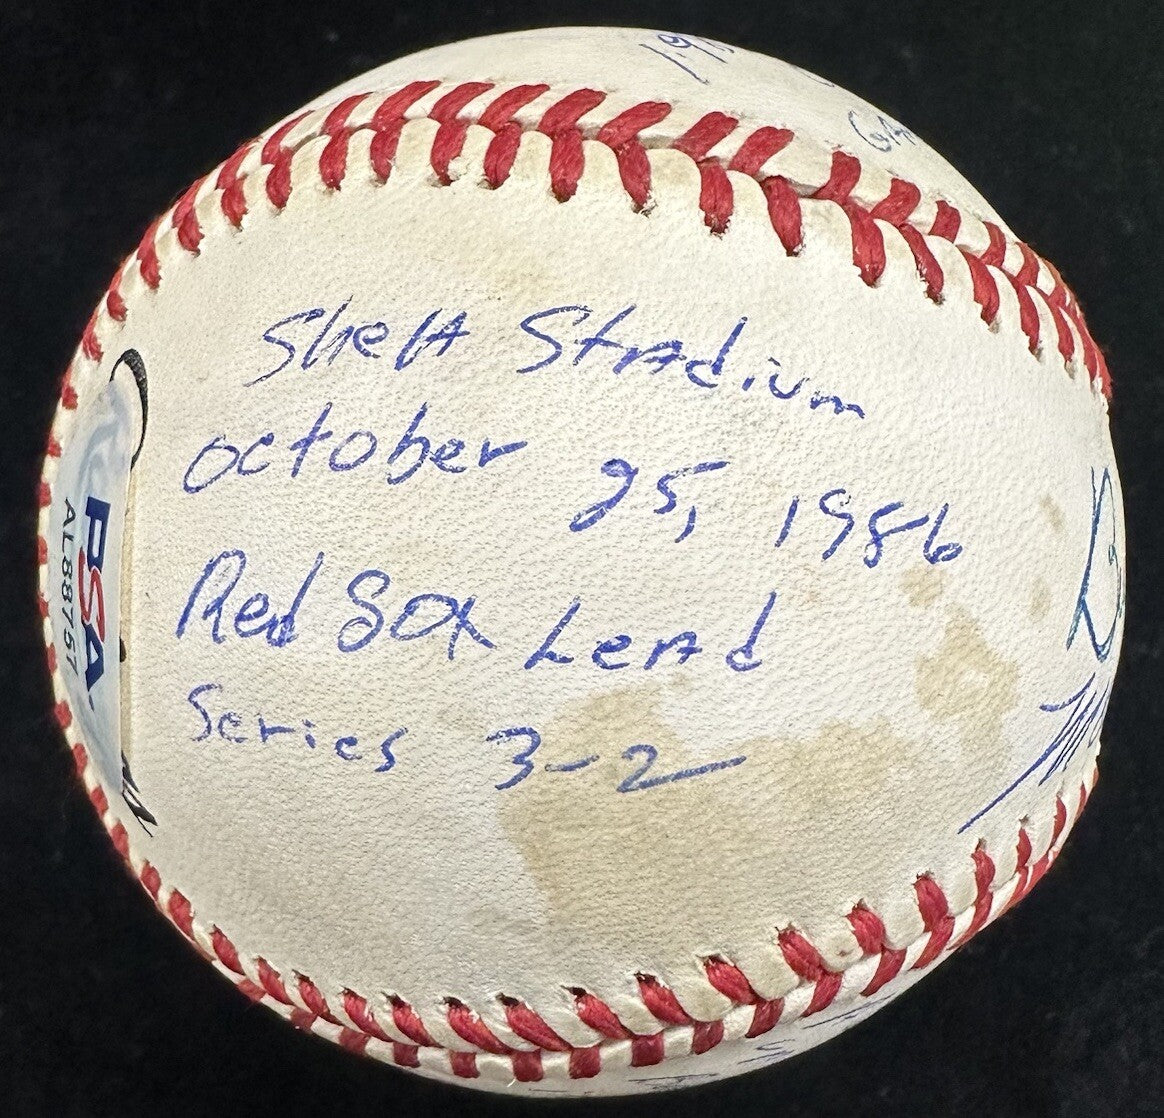 Shea Stadium
October 25, 1986
Red Sox Lead
Series 3-2
PSA
AL88757